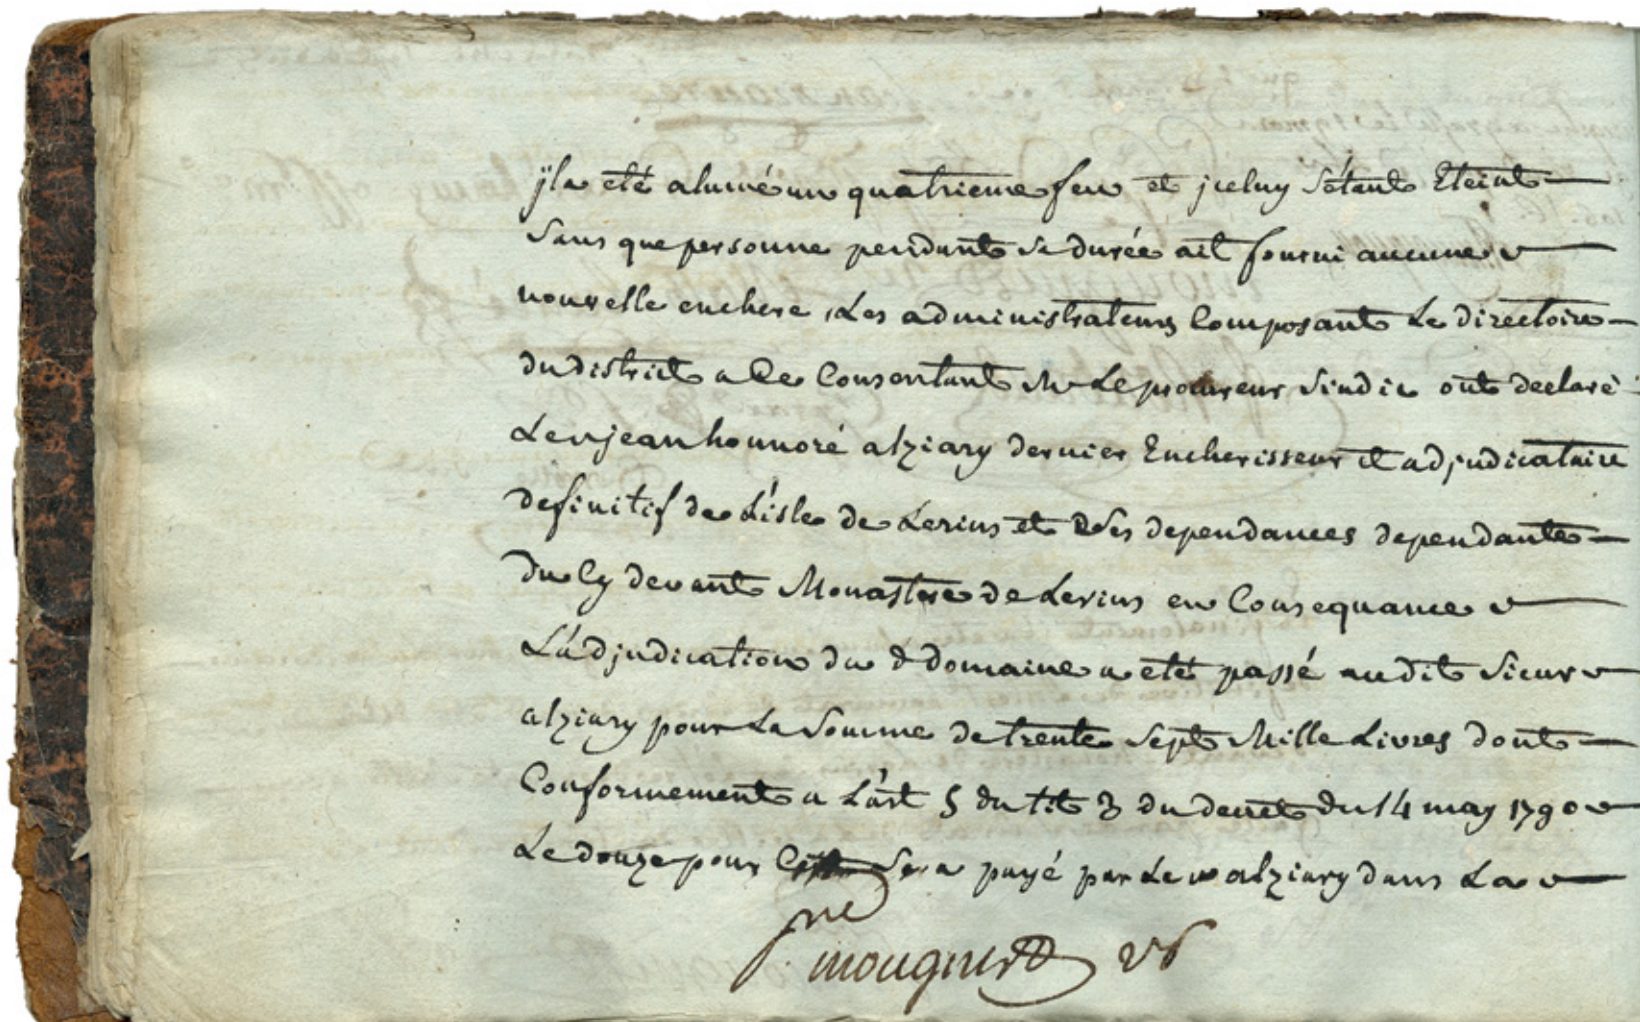 jl a eté alumé un quatrieme feu et jceluy s'étant Eteint
Sans que personne pendant sa durée ait fourni aucune
nouvelle enchere, Les administrateurs Composant Le directoire
du district a Ce Consentant Mr Le procureur Sindic ont declaré
Le Sr jean honnoré alziary dernier Encherisseur et adjudicataire
definitif de L'isle de Lerins et des dependances dependante
du Cy devant Monastere de Lerins en Consequance
L'adjudication du d domaine a eté passé audit Sieur
alziary pour La Somme de trente Sept Mille Livres dont
Conformement a L'art 5 du tit 3 du decret du 14 may 1790
Le douze pour Cent Sera payé par Le Sr alziary dans La